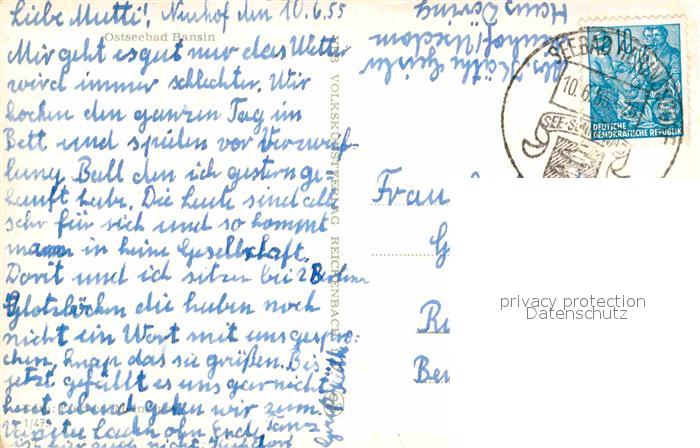 Liebe Mutti!, Neuhof den 10.6.55
Ostseebad Bansin
Mir geht es gut nur das Wetter
wird immer schlechter. Wir
hocken den ganzen Tag im
Bett und spielen vor Verzweif-
lung Ball den ich gestern ge-
kauft habe. Die Leute sind alle
sehr für sich und so kommt
mann in keine Gesellschaft.
Dorit und ich sitzen bei 2 Berliner
Glotzböcken die haben noch
nicht ein Wort mit uns gespro-
chen, knap das sie grüßen. Bis
jetzt gefällt es uns gar nicht
heut abend gehen wir zum
Lachen ohn Ende
Tanz
VOLKSKUNSTVERLAG REICHENBACH
Neuhof/Usedom
SEEBAD
10.6.55
DEUTSCHE
DEMOKRATISCHE REPUBLIK
Frau
privacy protection
Datenschutz